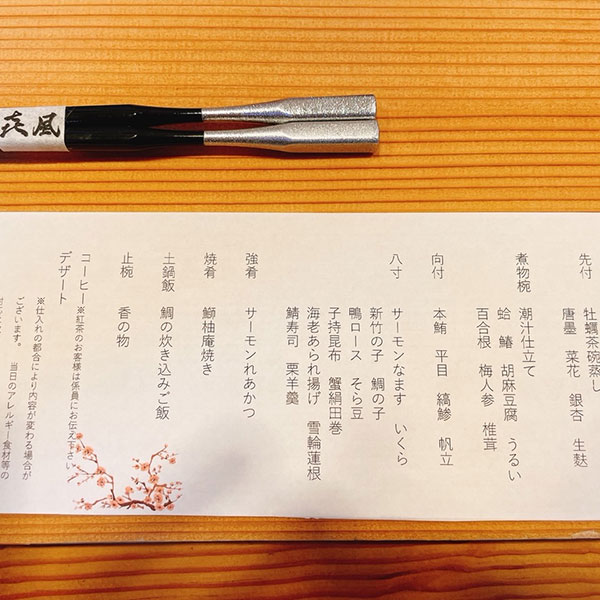 㐂風
先付
牡蠣茶碗蒸し
唐墨 菜花 銀杏 生麩
煮物椀
潮汁仕立て
蛤 鰆 胡麻豆腐 うるい
百合根 梅人参 椎茸
向付
本鮪 平目 縞鯵 帆立
八寸
サーモンなます いくら
新竹の子 鯛の子
鴨ロース そら豆
子持昆布 蟹絹田巻
海老あられ揚げ 雪輪蓮根
鯖寿司 栗羊羹
強肴
サーモンれあかつ
焼肴
鰤柚庵焼き
土鍋飯 鯛の炊き込みご飯
止椀 香の物
コーヒー※紅茶のお客様は係員にお伝え下さい
デザート
※仕入れの都合により内容が変わる場合が
ございます。 当日のアレルギー食材等の